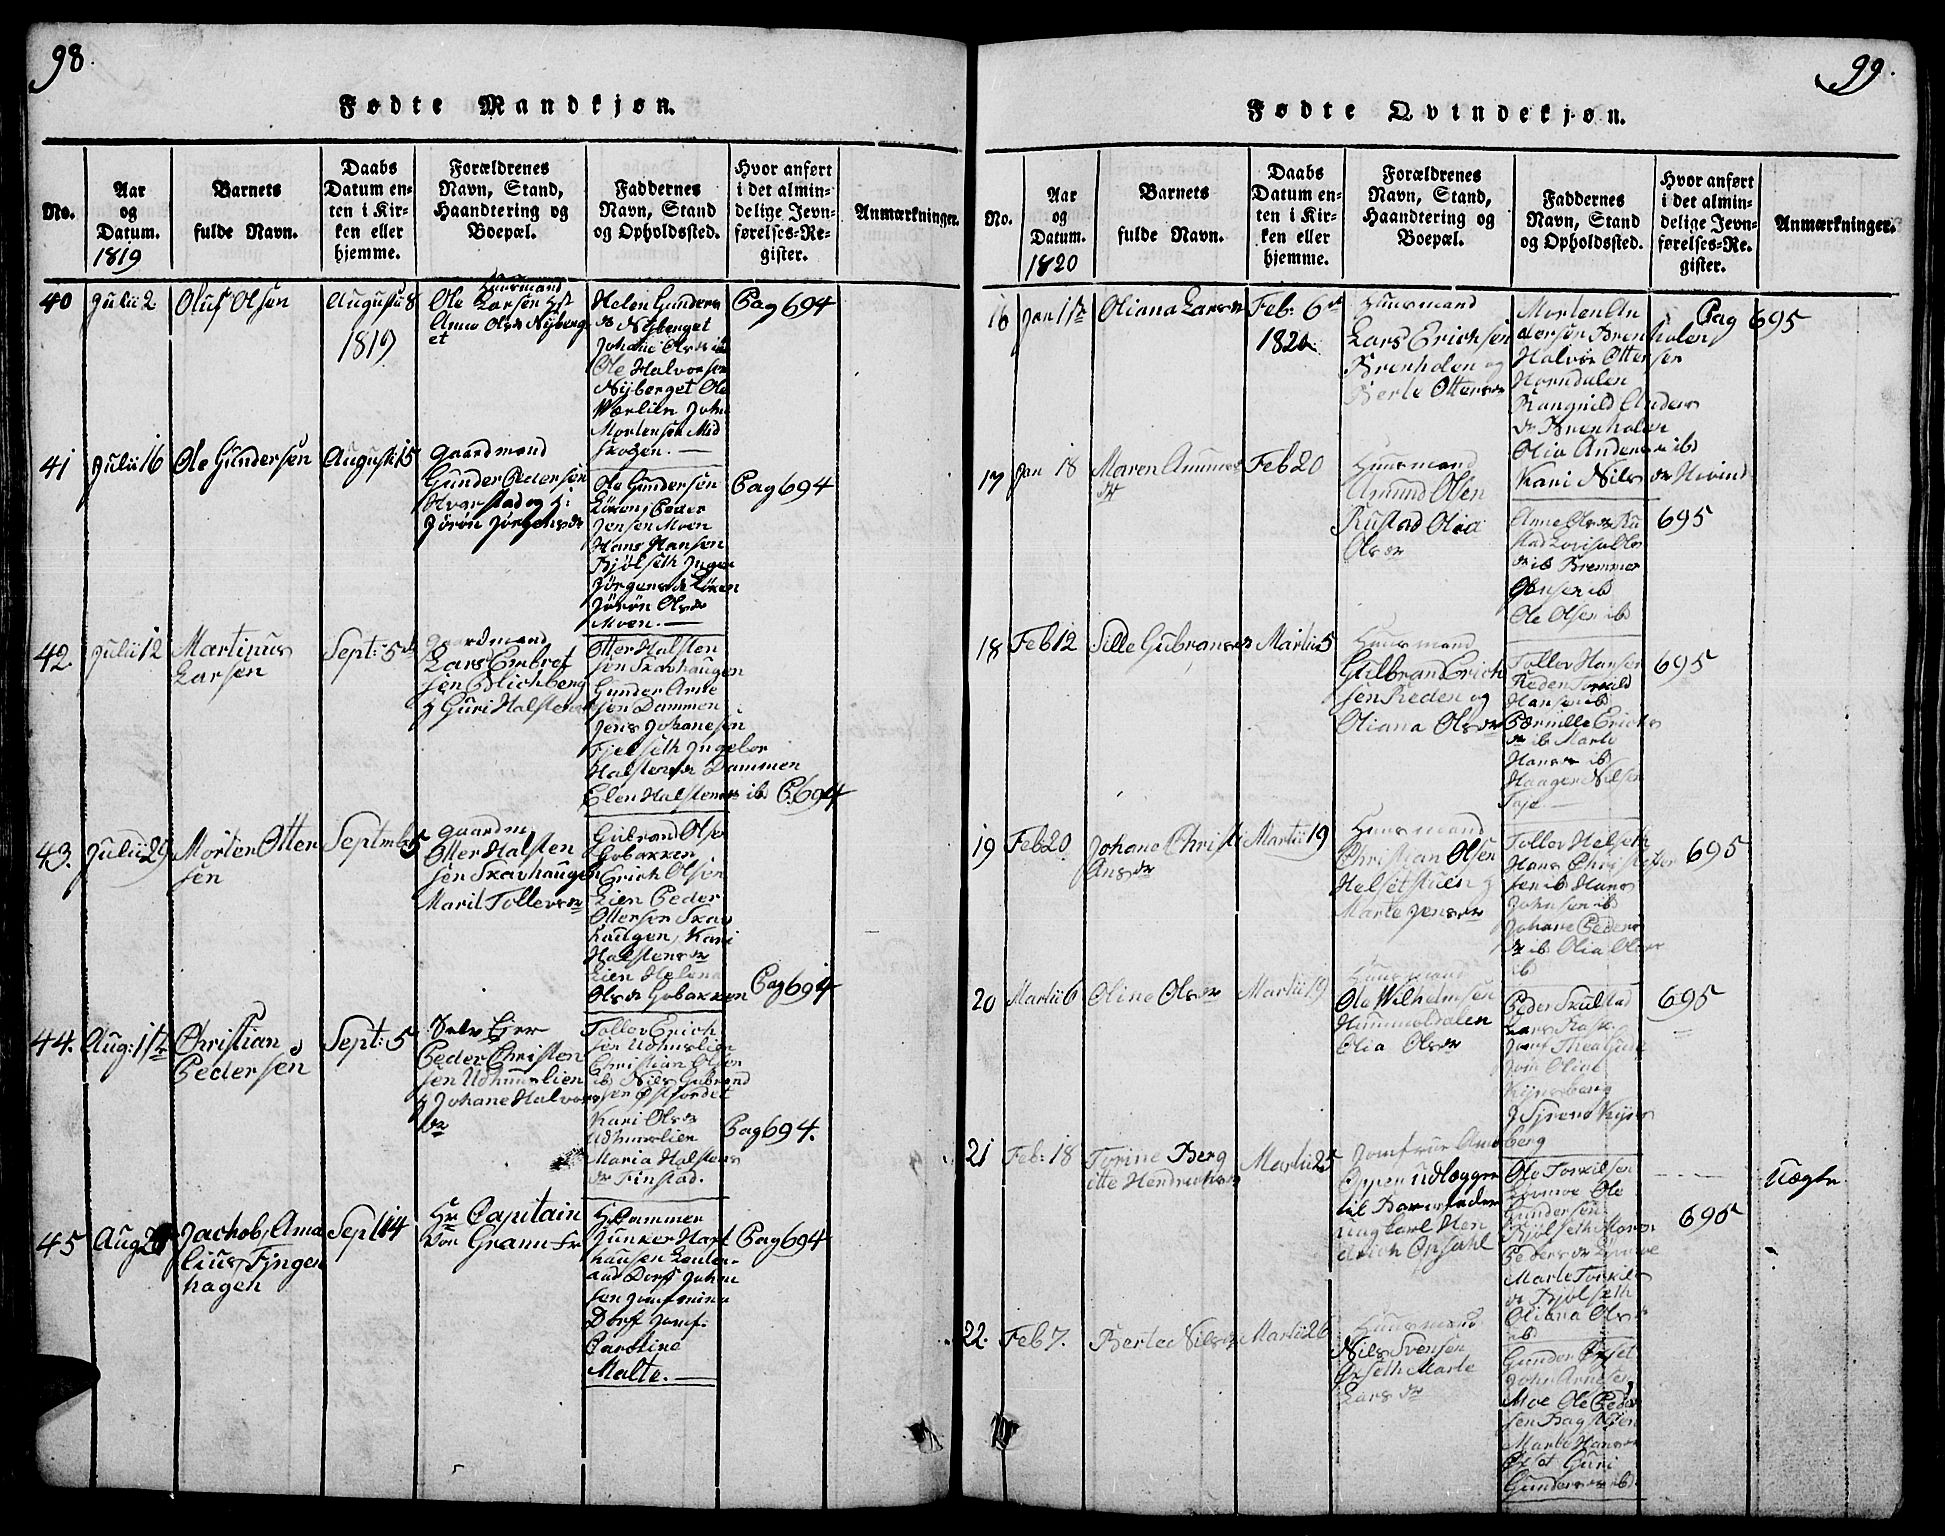 98.
Fødte Mandkjøn.
No.
Aar
og
Datum.
1819
Barnets
fulde Navn.
Daabs
Datum en-
ten i Kir-
ken eller
hjemme.
Forældrenes
Navn, Stand,
Haandtering og
Boepæl.
Faddernes
Navn, Stand
og Opholdssted.
Hvor anført
i det almin-
delige Jevn-
førelses-Re-
gister.
Anmærkninger.
40
Julii 2
Oluf Olsen
August 8
1819
Huusmand
Ole Larsen
Anne Olsdr Nÿberg
et
Helen Gunders
dr Nÿberget
Johane Olsdr ib
Ole Halvorsen
Nÿberget Ole
Wærlien John
Mortensen Mid
skogen. —
Pag 694
41
Julii 16
Ole Gundersen
Augusti 15
Gaardmand
Gunder Pedersen
Hvarstad og
Jörön Jörgensdr
Ole Gundersen
Löken, Peder
Jensen Moen
Hans Hansen
Kjölseth Inger
Jörgensdr Löken
Jörön Olsdr
Moen. —
Pag 694
42
Julii 12
Martinus
Larsen
Sept: 5
Gaardmand
Lars Embret
sen Blichberg
Guri Halstens
Otter Halsten
sen Skavhaugen
Gunder Arne
sen Dammen
Jens Johanesen
Fjelseth Ingebor
Halstensdr Dammen
Elen Halstens ib
P. 694
43.
Julii 29
Morten Otter
sen
Septmb 5
Gaardm
Otter Halsten
sen Skavhaugen
Marit Tollevsdr
Gulbrand Olsen
Gobakken
Erich Olsen
Lien Peder
Ottersen Skav
haugen, Kari
Halstensdr
Lien Helena
Olsdr Gobakken
Pag 694
44.
Aug: 1ste
Christian
Pedersen
Sept: 5
Selv Eier
Peder Christen
sen Udhuuslien
Johane Halvors
dr
Tollov Erich
sen Udhuslien
Christian Olsen
ib Nils Gubrand
sen Østfordet
Kari Olsdr
Udhuuslien
Maria Halstens
dr Finstad.
Pag 694.
45
Aug
Jachob, Ama
lius Fÿngen
hagen
Sept 14
Hr Capitain
Von Gramm
Junker Hart
hausen
Dorf Johan
sen Jomf mina
Dorf Jomf:
Caroline
Malte. —
Pag 694

99.
Fødte Qvindekjøn.
No.
Aar
og
Datum.
1820
Barnets
fulde Navn.
Daabs
Datum en-
ten i Kir-
ken eller
hjemme.
Forældrenes
Navn, Stand,
Haandtering og
Boepæl.
Faddernes
Navn, Stand
og Opholdssted.
Hvor anført
i det almin-
delige Jevn-
førelses-Re-
gister.
Anmærkninger.
16
Jan 1ste
Oliana Larsdr
Feb: 6
1820
Huusmand
Lars Erichsen
Brenholen og
Berte Ottersdr
Morten An
dersen Brenholen
Halvor Otter sen
Horndalen
Rangnild Anders
dr Brenholen
Olia Anders ib
Kari Nils dr Hvind
Pag 695
17
Jan 18
Maren Amuns
dr
Feb 20
Huusmand
Amund Olsen
Rustad Olia
Olsdr
Anne Olsdr Ru
stad Lovisa Ols
dr ib Bremmer
ib
Ole Olsen ib
695
18
Feb 12
Sille Gubransdr
Martii 5
Huusmand
Gulbrand Erich
sen Reden og
Oliana Olsdr
Tollov Hansen
Reden
Hansen ib
Pærnille Erichs
dr ib Marte
Hansdr ib
Haagen Nilsen
695
19
Feb 20
Johane Christi
Ansdr
Martii 19
Huusmand
Christian Olsen
Helsetstuen
Marte Jensdr
Tollov Helseth
Hans Christofer
sen ib Hans
Johnsen ib
Johane Peders
dr ib Olia Olsdr
ib
695
20
Martii 6
Oline Olsdr
Martii 19
Huusmand
Ole Wilhelmsen
Hummeldalen
Olia Olsdr
Peder Skulstad
Lars
Jomf
Jom Oline
Kÿnsberg
berg
695
21
Feb: 18
Torine Berg
itte Hendrichsdr
Martii 25
Jomfrue
Oppen udlægger
til Barnefader
ungkarl Hen
drich Opsahl
Ole Torkilsen
Ole
Gundersen
Kjölseth Maren
Pedersdr
Marte Torkils
dr Kjölseth
Oliana Ols
ib
695
Uægte
22.
Feb 7.
Berte Nilsdr
Martii 26
Huusmand
Nils Svensen
Øxseth Marte
Larsdr
Gunder
John Arnesen
Moe Ole Peder
sen Bagstuen
Marte Hansdr
Guri
Gundersdr ib